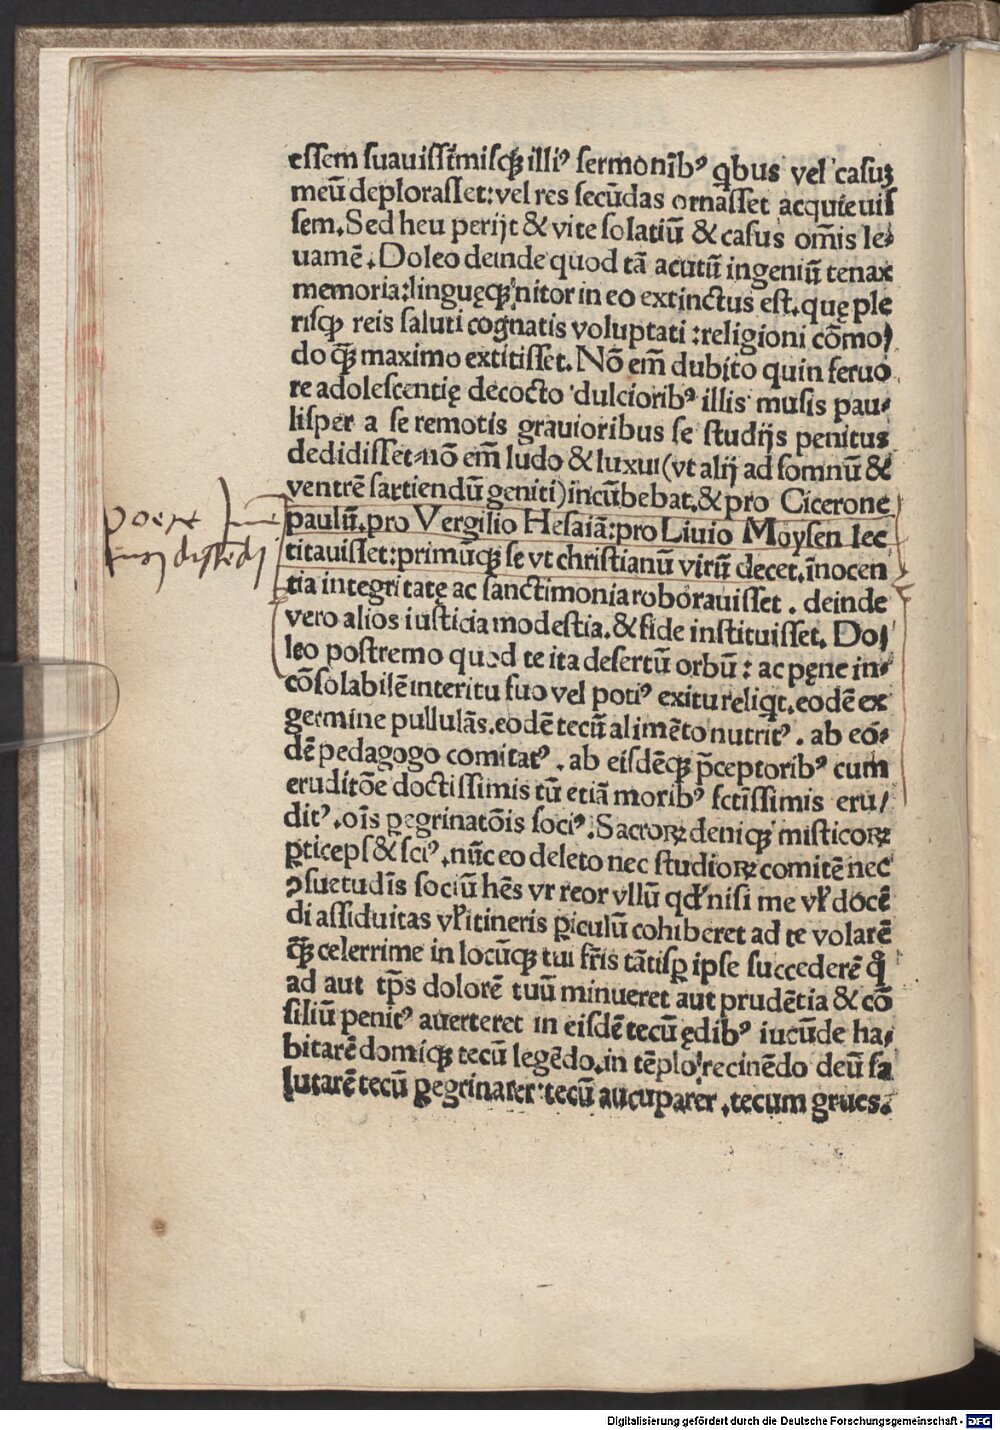 essem suauissimisq̃ꝫ illiꝰ sermonĩbꝰ qbus vel casuꝫ
meũ deplorasset: vel res secũdas ornasset acquieuis
sem. Sed heu perijt & vite solatiũ & casus om̃is le⸗
uamẽ. Doleo deinde quod tã acutũ ingeniũ tenax
memoria: linguęqꝫ nitor in eo extinctus est. quę ple
risqꝫ reis saluti cognatis voluptati: religioni cõmo⸗
do q̃ꝫ maximo extitisset. Nõ em̃ dubito quin feruo
re adolescentię decocto dulcioribꝰ illis musis pau⸗
lisper a se remotis grauioribus se studijs penitus
dedidisset. nõ em̃ ludo & luxui (vt alij ad somnũ &
ventrẽ sartiendũ geniti) incũbebat. & pro Cicerone
paulũ. pro Vergilio Hesaiã: pro Liuio Moysen lec
titauisset: primũqꝫ se vt christianũ virũ decet. ĩnocen
tia integritatę ac sanctimonia roborauisset. deinde
vero alios iusticia modestia. & fide instituisset. Do⸗
leo postremo quod te ita desertũ orbũ: ac pęne in⸗
cõsolabilẽ interitu suo vel potiꝰ exitu reliqt. eodẽ ex
germine pullulãs. eodẽ tecũ alimẽto nutritꝰ. ab eo⸗
dẽ pedagogo comitatꝰ. ab eisdẽqꝫ p̃ceptoribꝰ cum
eruditõe doctissimis tũ etiã moribꝰ sctĩssimis eru⸗
ditꝰ. oĩs ꝑegrinatõis sociꝰ. Sacroꝝ deniqꝫ misticoꝝ
ꝑticeps & sciꝰ. nũc eo deleto nec studioꝝ comitẽ nec
ꝯsuetudĩs sociũ hẽs vt reor vllũ qđ nisi me vł docẽ
di assiduitas vł itineris ꝑiculũ cohiberet ad te volarẽ
q̃ꝫ celerrime in locũqꝫ tui fr̃is tãtisꝑ ipse succederẽ q̊
ad aut tp̃s dolorẽ tuũ minueret aut prudẽtia & cõ
siliũ penitꝰ auerteret in eisdẽ tecũ ędibꝰ iucũde ha⸗
bitarẽ domiqꝫ tecũ legẽdo. in tẽplo recinẽdo deũ sa
lutarẽ tecũ ꝑegrinarer: tecũ aucuparer. tecum grues.
Digitalisierung gefördert durch die Deutsche Forschungsgemeinschaft - DFG